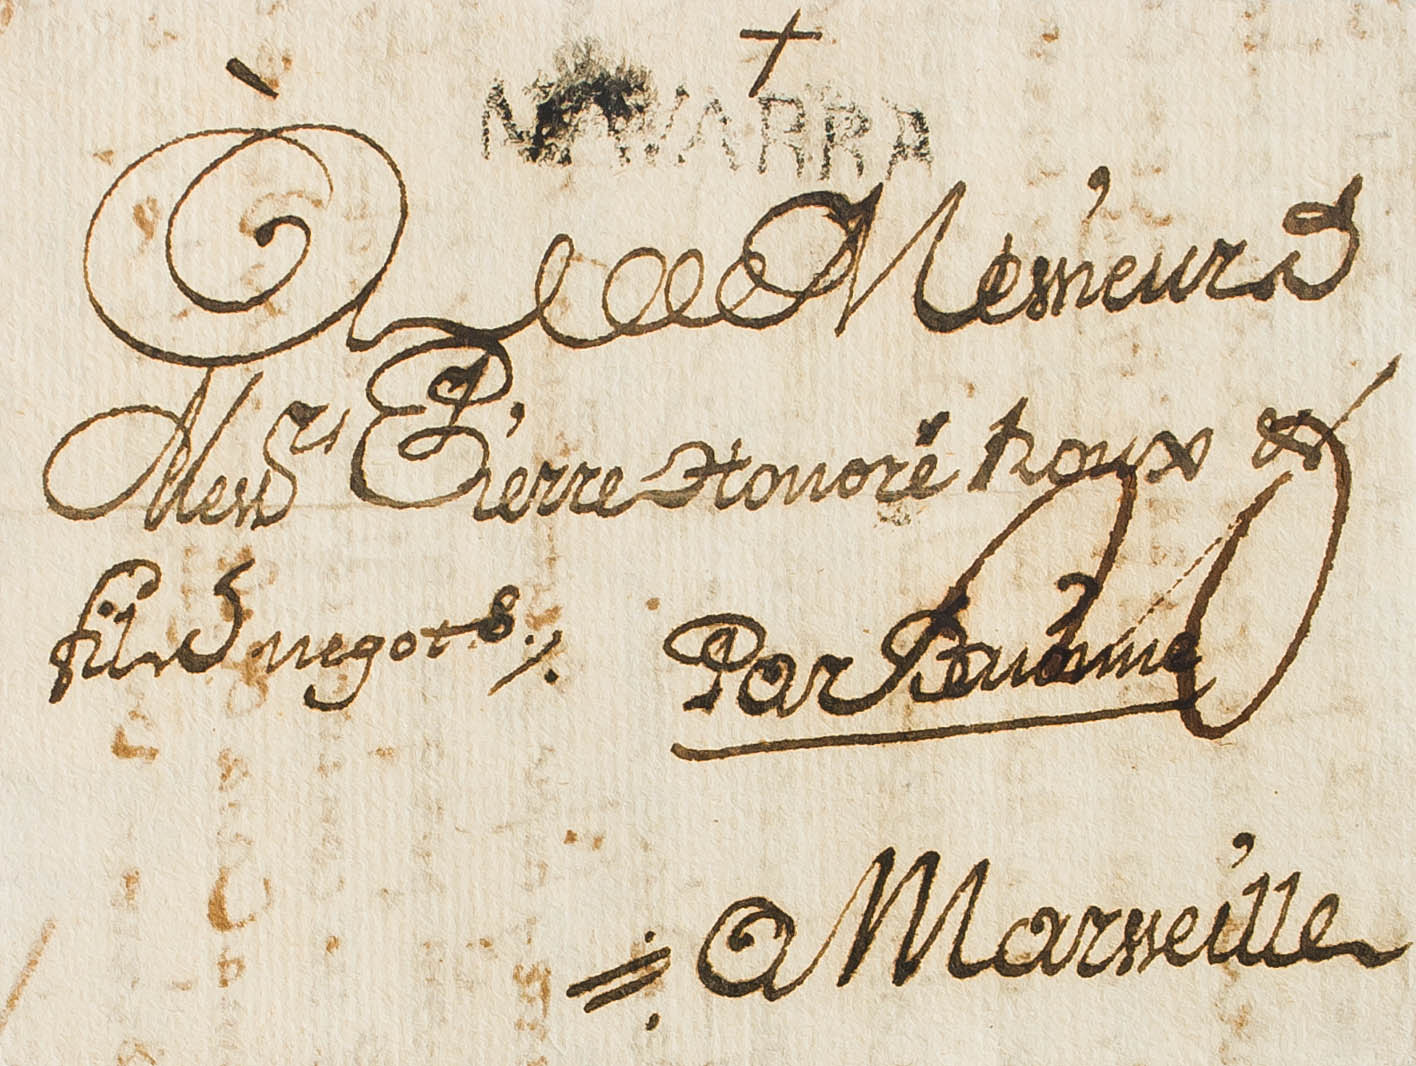 NAVARRA
À Messieurs
Mess.rs Pierre Honoré Roux &
fils negots
Par Baionne
a Marseille